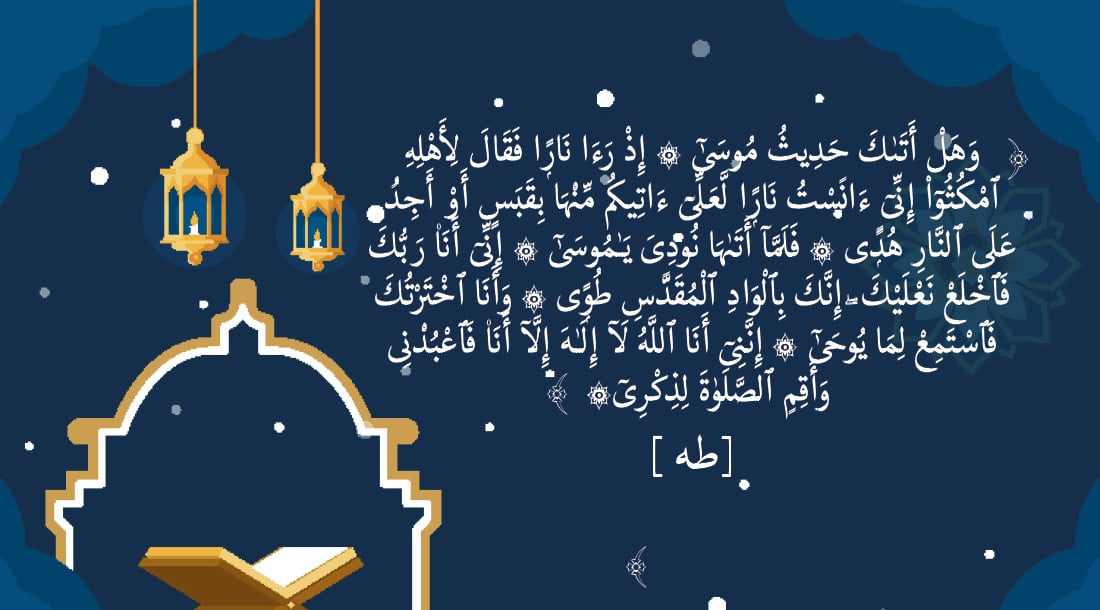 ﴿ وَهَلْ أَتَىٰكَ حَدِيثُ مُوسَىٰٓ ۞ إِذْ رَءَا نَارًا فَقَالَ لِأَهْلِهِ
ٱمْكُثُوٓا۟ إِنِّىٓ ءَانَسْتُ نَارًا لَّعَلِّىٓ ءَاتِيكُم مِّنْهَا بِقَبَسٍ أَوْ أَجِدُ
عَلَى ٱلنَّارِ هُدًى ۞ فَلَمَّآ أَتَىٰهَا نُودِىَ يَـٰمُوسَىٰٓ ۞ إِنِّىٓ أَنَا۠ رَبُّكَ
فَٱخْلَعْ نَعْلَيْكَ ۖ إِنَّكَ بِٱلْوَادِ ٱلْمُقَدَّسِ طُوًى ۞ وَأَنَا ٱخْتَرْتُكَ
فَٱسْتَمِعْ لِمَا يُوحَىٰٓ ۞ إِنَّنِىٓ أَنَا ٱللَّهُ لَآ إِلَـٰهَ إِلَّآ أَنَا۠ فَٱعْبُدْنِى
وَأَقِمِ ٱلصَّلَوٰةَ لِذِكْرِىٓ ۞ ﴾
[طه ]
﴾